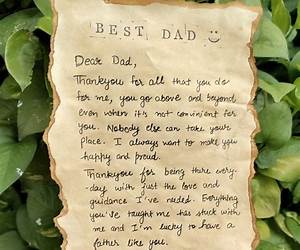 BEST DAD ☺
Dear Dad,
Thankyou for all that you do
for me, you go above and beyond
even when it's not convinient for
you. Nobody else can take your
place. I always want to make you
happy and proud.
Thankyou for being there every-
day with just the love and
guidance I've needed. Everything
you've taught me has stuck with
me and I'm lucky to have a
father like you.